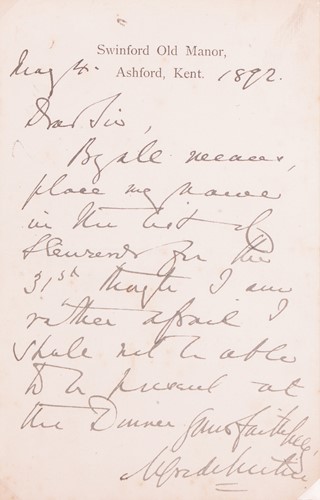 Swinford Old Manor,
Ashford, Kent.
May 4. 1892.
Dear Sir,
By all means,
place my name
in the list of
Stewards for the
31st though I am
rather afraid I
shall not be able
to be present at
the Dinner Yours faithfully
Alfred Austin